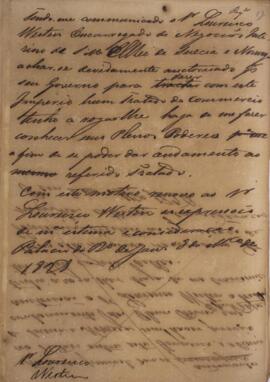 Tendo-me communicado o Sr Lourenço
Westin Encarregado de Negocios Inte-
rino de S. M. El Rei de Suecia e Norue-
ga achar-se devidamente auctorisado
seu Governo para fazer com este
Imperio hum Tratado de Commercio
tenho a rogar lhe haja de me fazer
conhecer seus Plenos Poderes
a fim de se poder dar andamento ao
mesmo referido Tratado.
Com este motivo renovo ao Sr
Lourenço Westin as expressões
de m. estima e consideração
Palacio do Rio de Janro 3 de de
1828
Sr. Lourenço
Westin